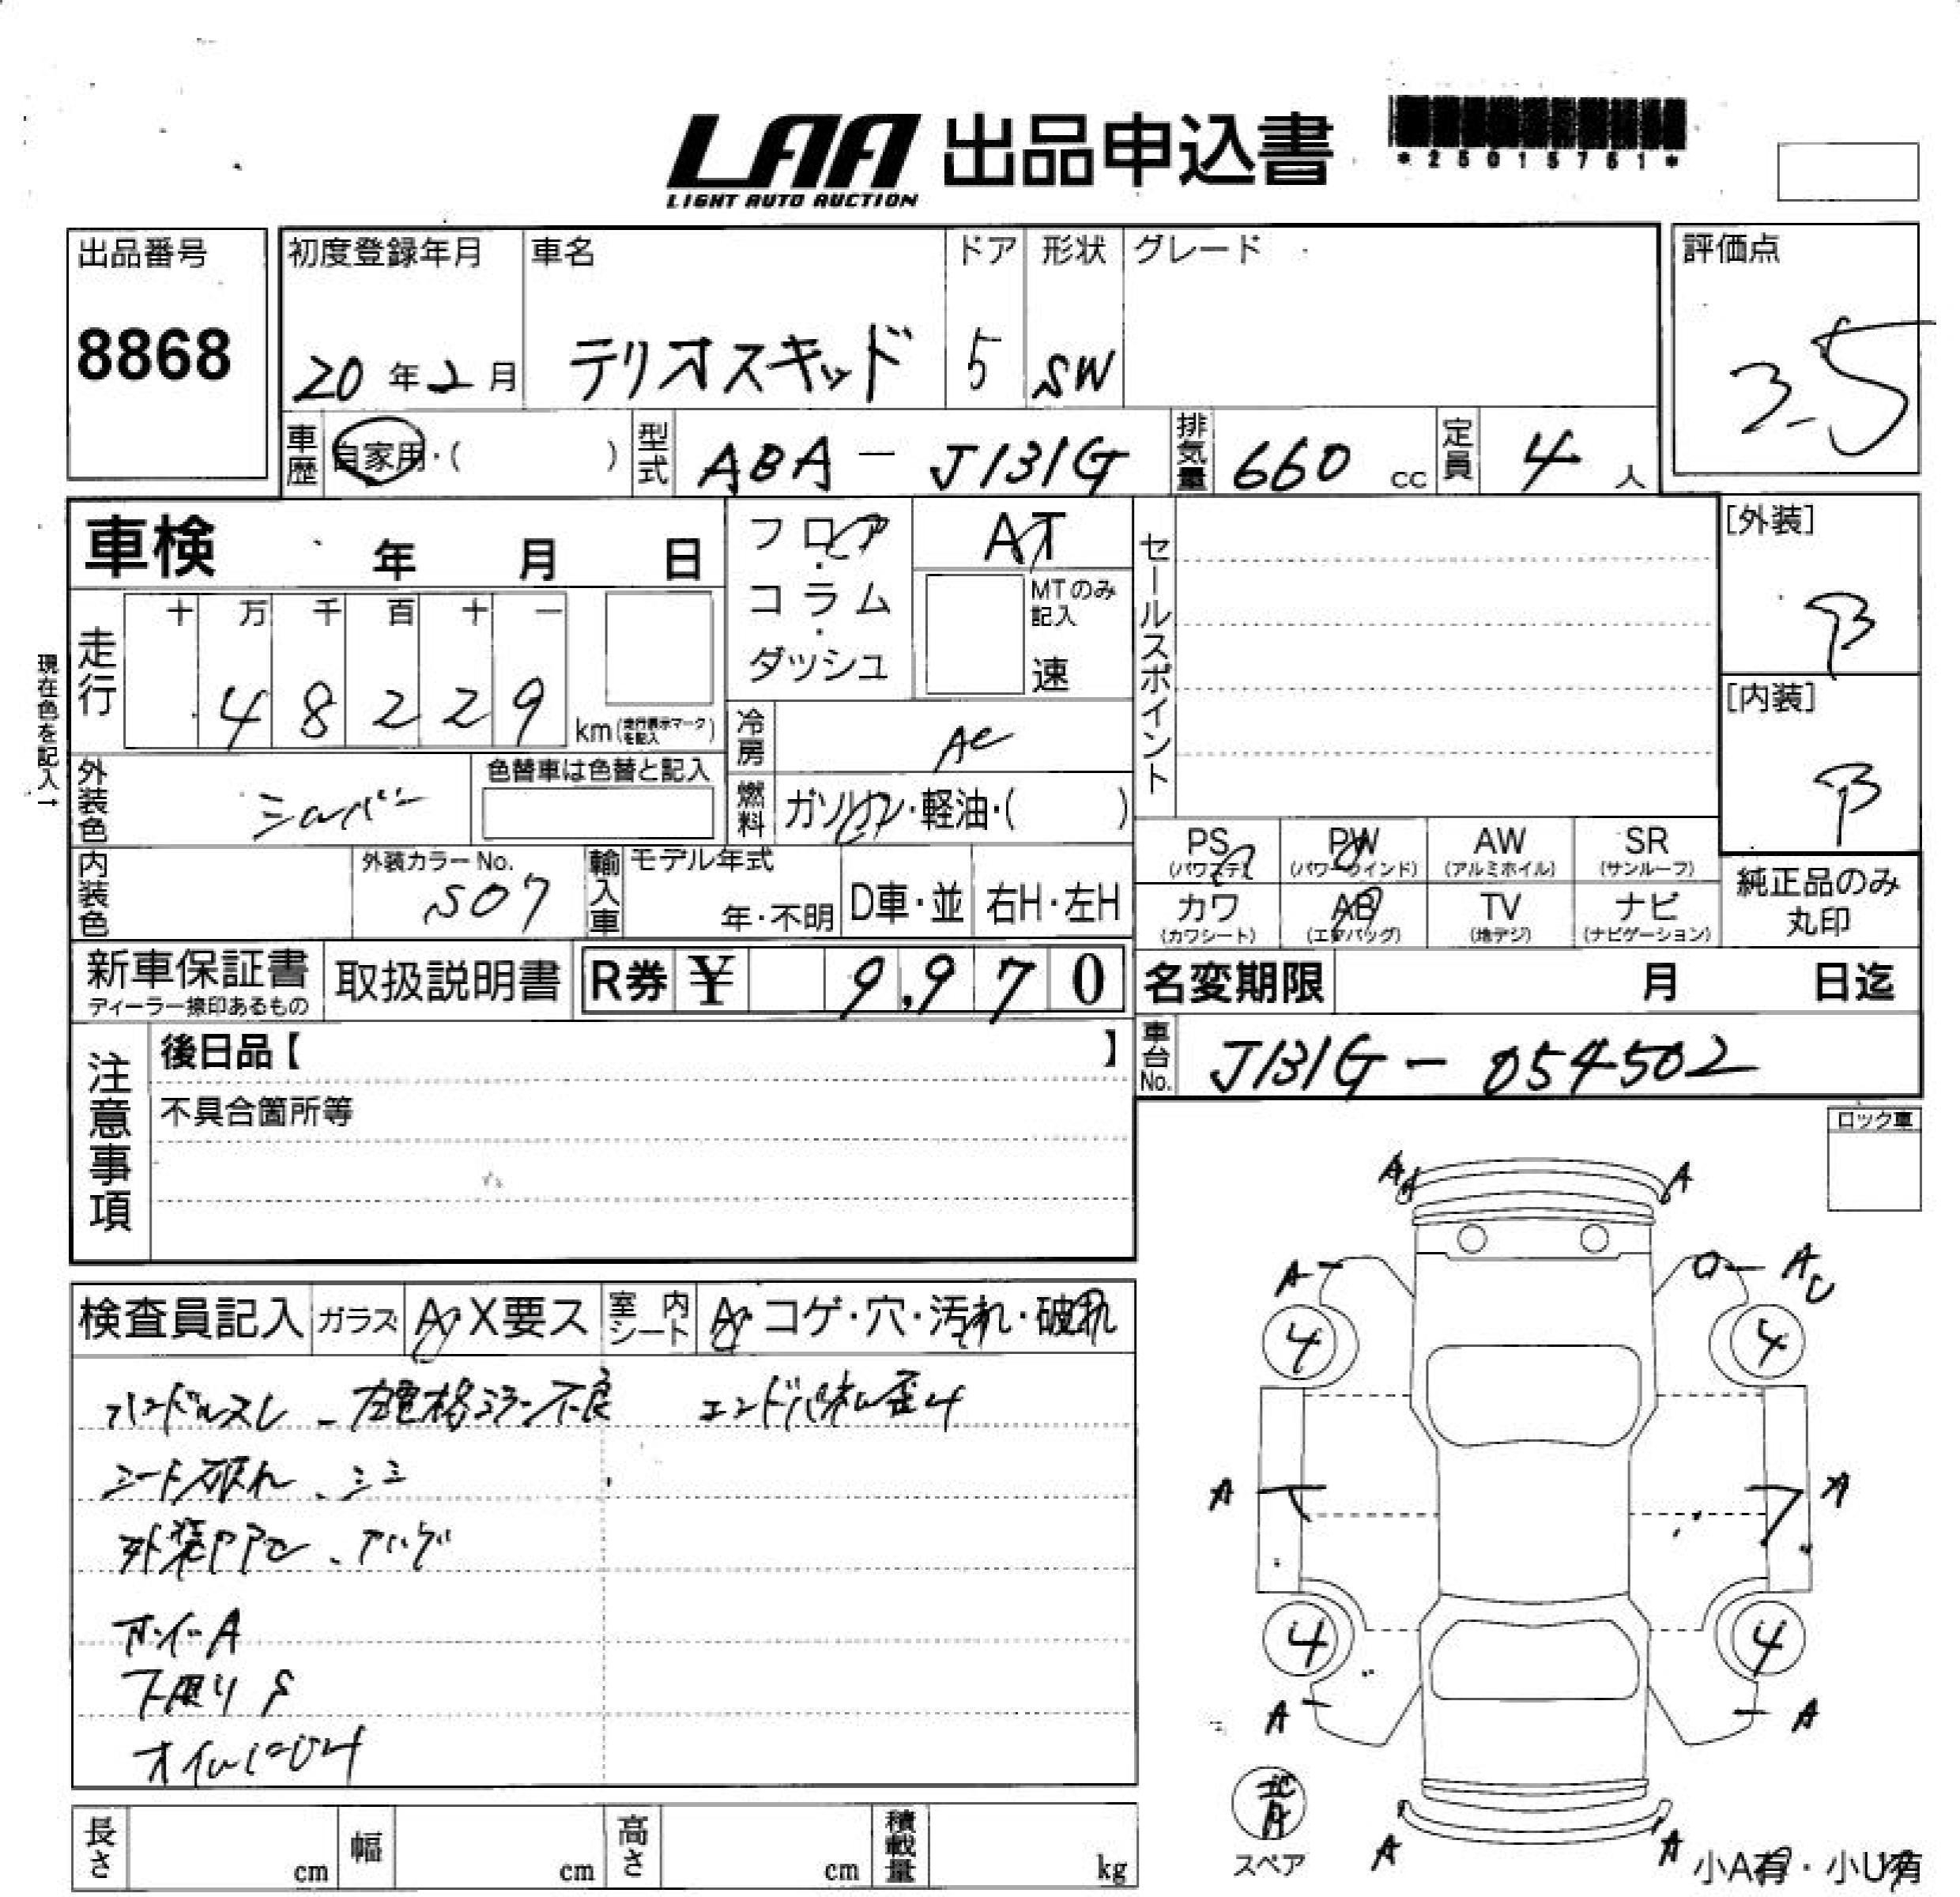 LAA 出品申込書
LIGHT AUTO AUCTION
*25015761*
出品番号
8868
初度登録年月 車名 ドア 形状 グレード
20年2月 テリオスキッド 5 SW
評価点
3.5
車歴 自家用・( ) 型式 ABA-J131G 排気量 660 cc 定員 4 人
車検 年 月 日
フロア・コラム・ダッシュ
AT
MTのみ記入
速
セールスポイント
[外装]
B
[内装]
B
現在色を記入→
走行 十 万 千 百 十 一
48229 km (走行表示マークを記入)
冷房 AC
外装色 シルバー
色替車は色替と記入
燃料 ガソリン・軽油・( )
内装色
外装カラーNo.
S07
輸入車 モデル年式
年・不明 D車・並 右H・左H
PS (パワステ) PW (パワーウインド) AW (アルミホイル) SR (サンルーフ)
カワ (カワシート) AB (エアバッグ) TV (地デジ) ナビ (ナビゲーション)
純正品のみ丸印
新車保証書
ディーラー捺印あるもの
取扱説明書 R券 ¥ 9,970
名変期限 月 日迄
車台No. J131G-054502
注意事項
後日品【 】
不具合箇所等
ロック車
検査員記入 ガラス A・X要ス 室内シート A・コゲ・穴・汚れ・破れ
ハンドルスレ 右電格ミラー不良 エンドパネル歪み
シート破れ、シミ
外装ヤケ、ハゲ
ホイールA
下廻りS
オイルにじみ
A A
A A U
4 4
A A
4 4
A A
スペア
A A
小A有・小U有
長さ cm 幅 cm 高さ cm 積載量 kg